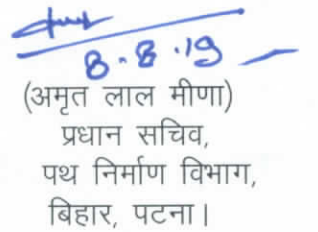 8.8.19
(अमृत लाल मीणा)
प्रधान सचिव,
पथ निर्माण विभाग,
बिहार, पटना।